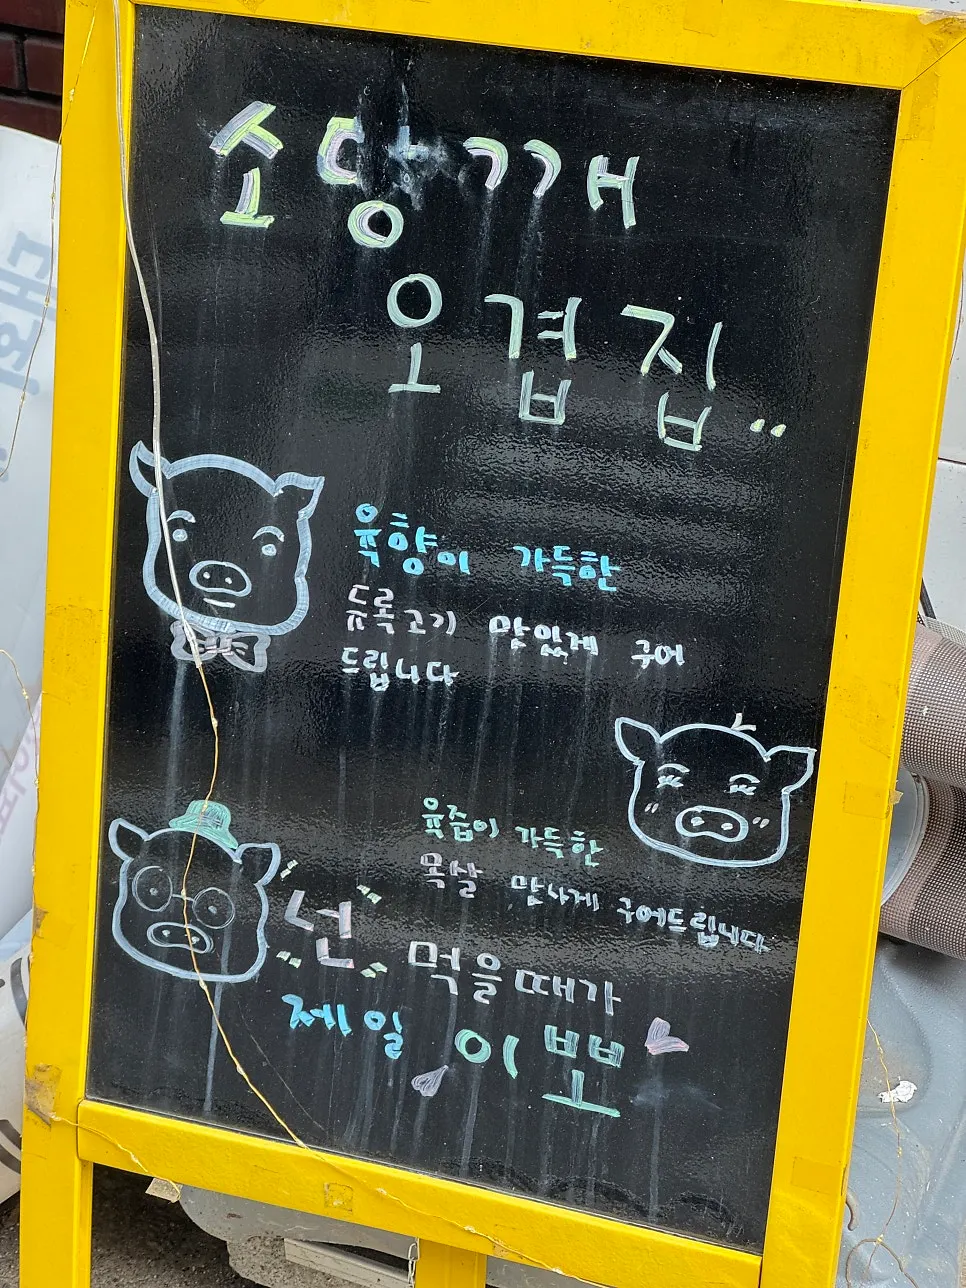 소당깨
오겹집..
육향이 가득한
듀록고기 맛있게 구어
드립니다
육즙이 가득한
목살 맛나게 구어드립니다
넌 먹을때가
제일 이뽀